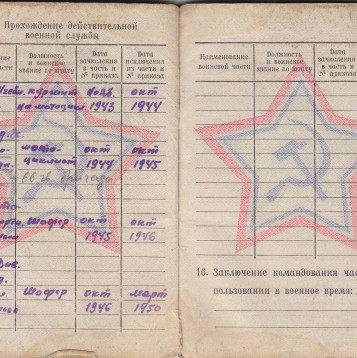 Прохождение действительной
военной службы
Должность
и воинское
звание по штату
Дата
зачисления
в часть и
№ приказа
Дата
исключения
из части и
№ приказа
части
курсант
нояб.
окт
на мотоцикл.
1943
1944
мото-
окт
окт
циклист
1944
1945
66 гв. бригада
Шофер
окт
окт
1945
1946
Див.
Шофер
окт
март
1946
1950
Наименование
воинской части
Должность
и воинское
звание по штату
Дата
зачисления
в часть
№ приказа
16. Заключение командования час
пользовании в военное время: